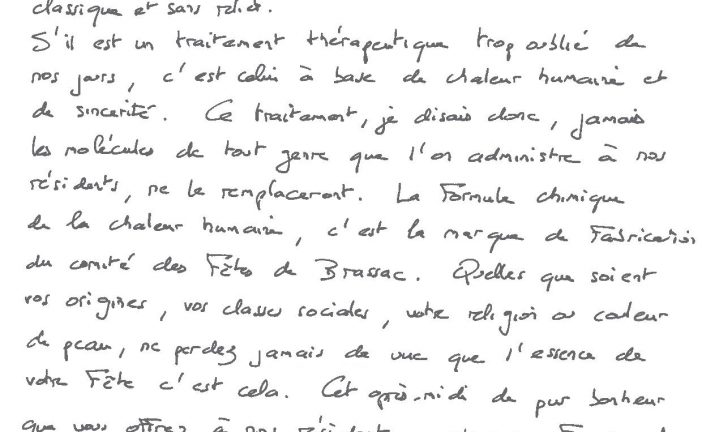 classique et sans relief.
S'il est un traitement thérapeutique trop oublié de
nos jours, c'est celui à base de chaleur humaine et
de sincérité. Ce traitement, je disais donc, jamais
les molécules de tout genre que l'on administre à nos
résidents, ne le remplaceront. La Formule chimique
de la chaleur humaine, c'est la marque de Fabrication
du comité des Fêtes de Brassac. Quelles que soient
vos origines, vos classes sociales, votre religion ou couleur
de peau, ne perdez jamais de vue que l'essence de
votre Fête c'est cela. Cet après-midi de pur bonheur
que vous offrez à nos résidents